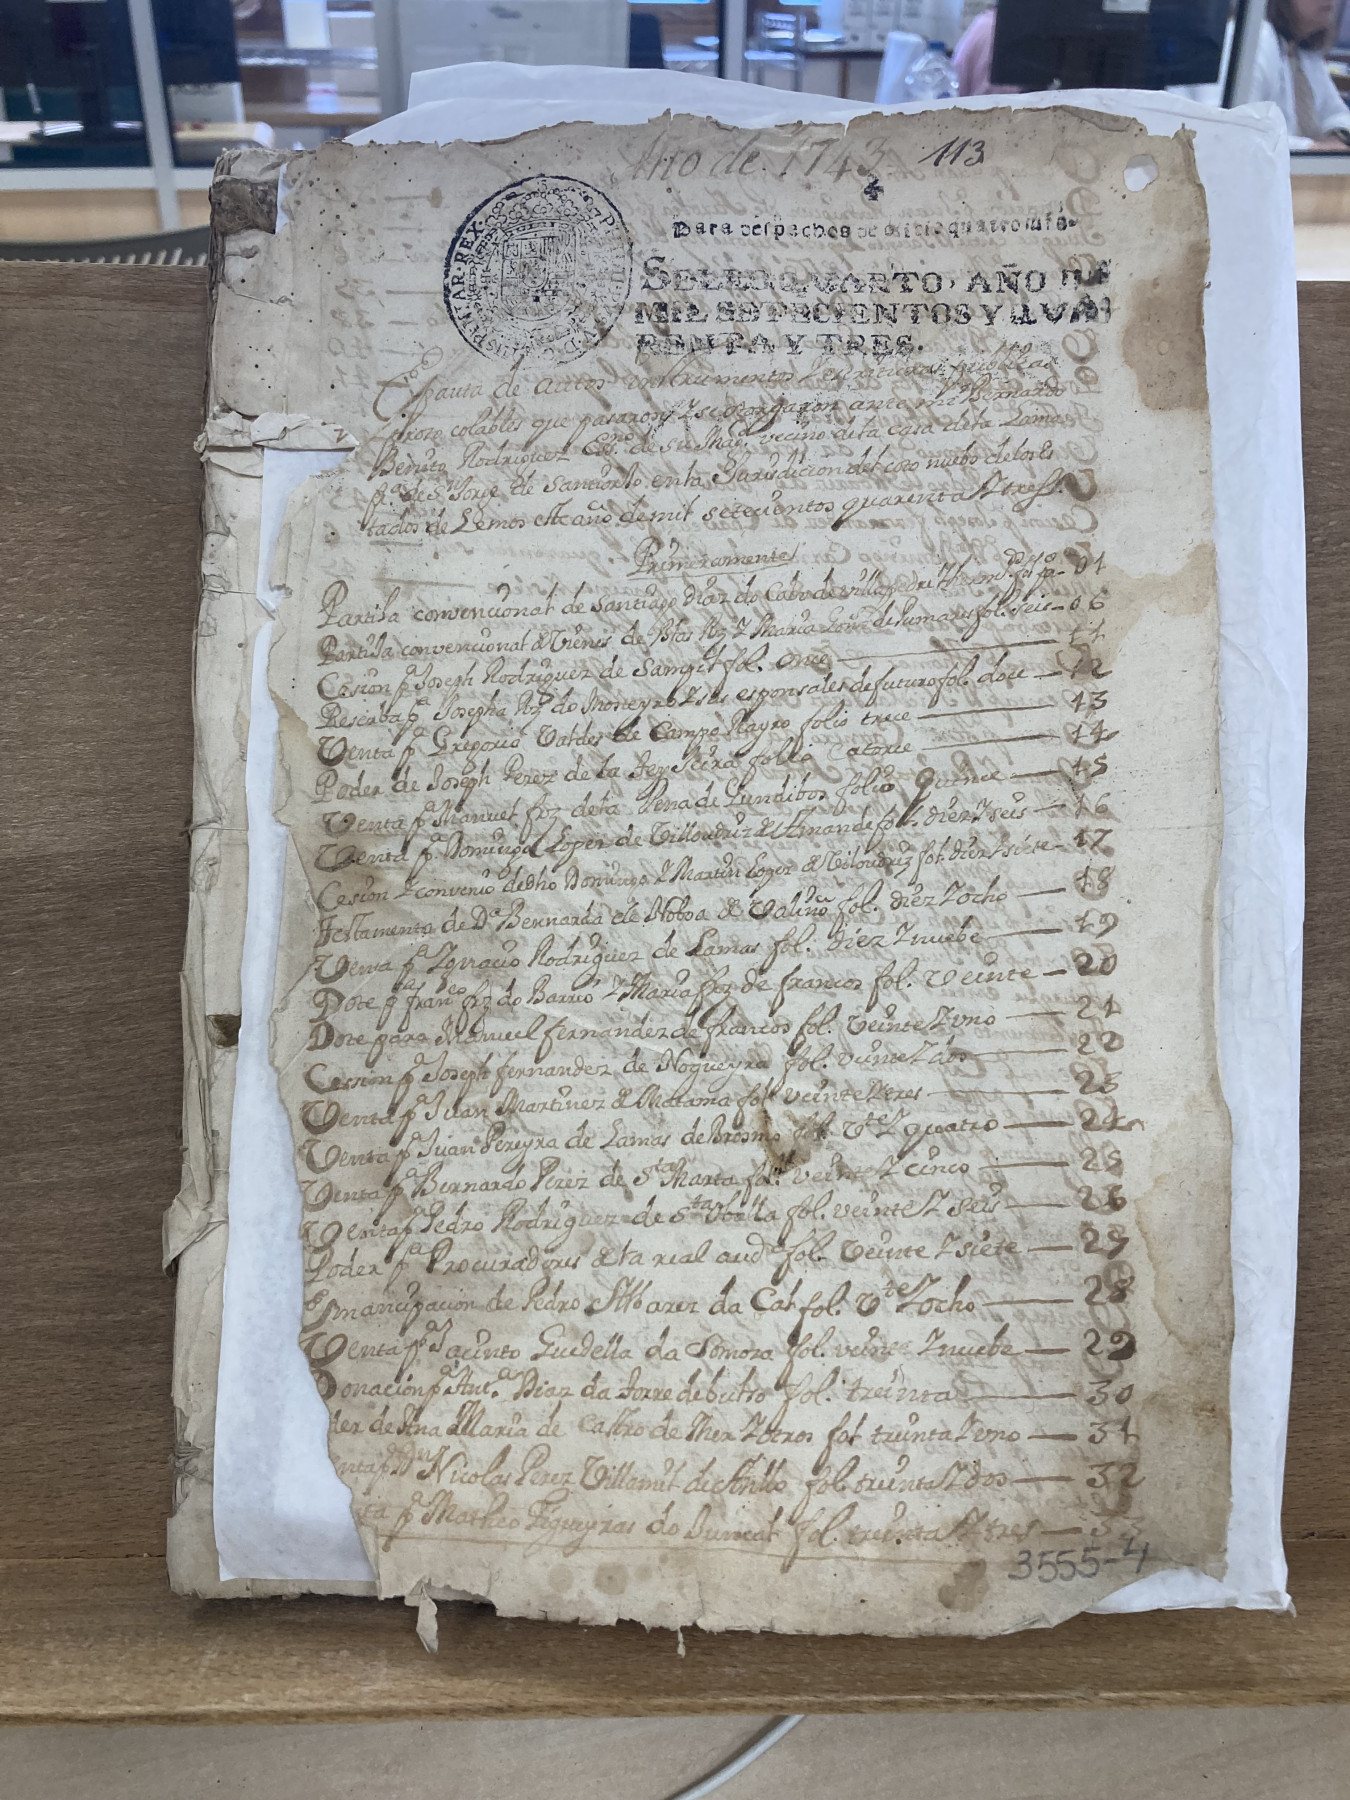 Año de 1743 113
Para despachos de oficio quatro mrs.
SELLO QVARTO, AÑO DE
MIL SETECIENTOS Y QVA
RENTA Y TRES.
pauta de autos instrumentos y escrituras publicas
que pasaron y se otorgaron ante mi Bernardo
Benito Rodriguez Esno. de su Magd. vecino de la casa de la Lama
fra. de Sn. Jorge de Santiorxo en la Jurisdicion del coto nuebo de los es
tados de Lemos este año de mil setecientos quarenta y tres
Primeramente
Partixa convencional de Santiago Diaz do Cabo de villa 01
Partixa convencional de Vienes de Blas Rz. y Maria fol. seis 06
Cesion pa. Joseph Rodriguez de fol. once 11
Reserba pa. Josepha Rz. do Moneyro y sus esponsales de futuro fol. doce 12
Venta pa. Gregorio Valdes de Campo Nayro folio trece 13
Poder de Joseph Perez de la folio Catorce 14
Venta pa. Manuel frz de la Pena de Lundibos folio Quince 15
Venta pa. Domingo Lopez de Villouxriz de Amande fol. diez y seis 16
Cesion y convenio de dho Domingo y Martin Lopez de Vilouxriz fol. diez y siete 17
Testamento de Da. Bernarda de Noboa de Valiño fol. diez y ocho 18
Venta pa. Ygnacio Rodriguez de Lamas fol. diez y nuebe 19
Dote pa. franco. frz do Barrio y Maria frz de francos fol. Veinte 20
Dote para Manuel fernandez de francos fol. Veinte y uno 21
Cesion pa. Joseph fernandez de Nogueyra fol. veinte y dos 22
Venta pa. Juan Martinez de Matama fol. veinte y tres 23
Venta pa. Juan Pereyra de Lamas de Brosmo fol. Vte. y quatro 24
Venta pa. Bernardo Perez de Sta. Marta fol. veinte y cinco 25
Venta pa. Pedro Rodriguez de Sta. fol. veinte y seis 26
Poder pa. Procuradores de la real auda. fol. Veinte y siete 27
Emancipacion de Pedro Albarez da Cal fol. Vte. y ocho 28
Venta pa. Jacinto Guedella da Somoza fol. veinte y nuebe 29
Donacion pa. Anta. Diaz da Torre de butro fol. treinta 30
der de Ana Maria de Castro de Mer y otros fol treinta y uno 31
enta pa. Dn. Nicolas Perez Villamil de Anllo fol. treinta y dos 32
ta pa. Matheo Figueyras do Jumeal fol. treinta y tres 33
3555-4